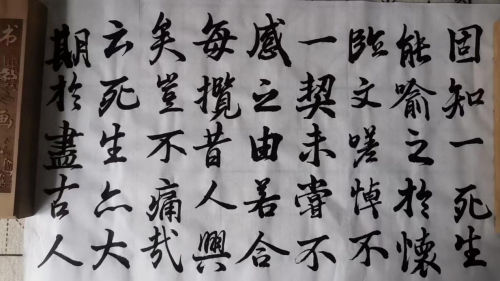 期於盡古人
云死生亦大
矣豈不痛哉
每攬昔人興
感之由若合
一契未嘗不
臨文嗟悼不
能喻之於懷
固知一死生
书
画